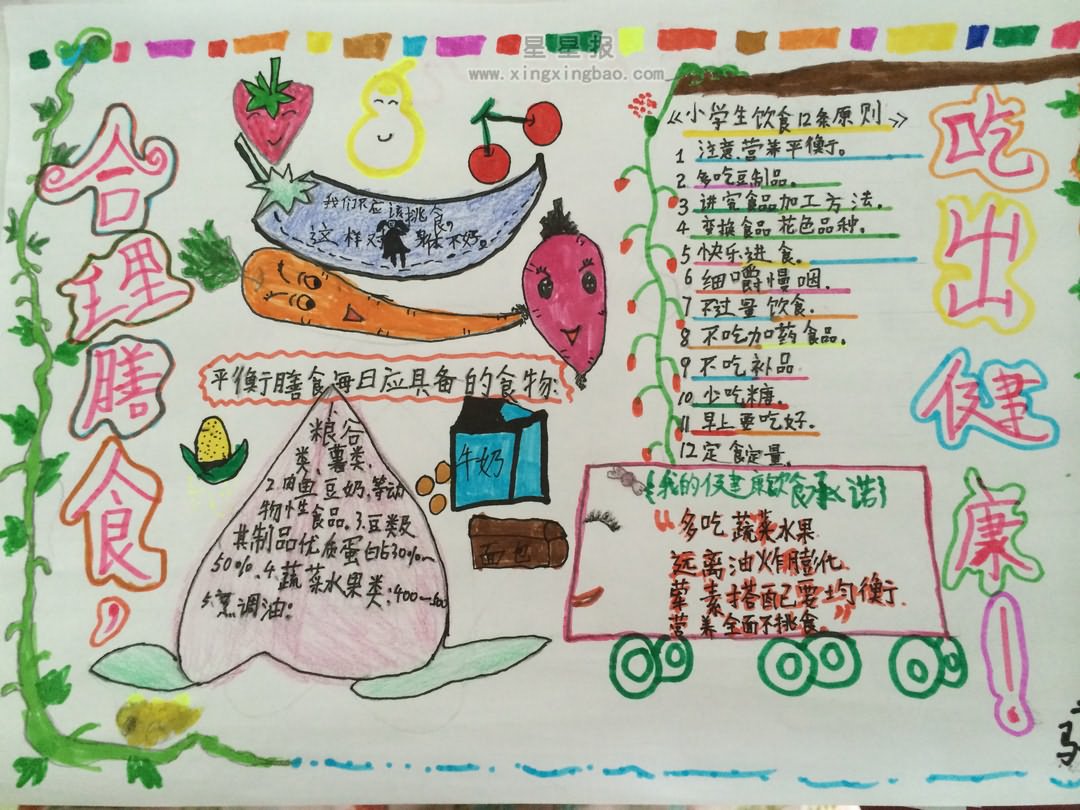 星星报
www.xingxingbao.com
合理膳食，
吃出健康！
我们不应该挑食。
这样对身体不好。
平衡膳食每日应具备的食物：
粮谷
类、薯类、
2.肉鱼豆奶等动
物性食品。3.豆类及
其制品优质蛋白占30%~
50%.4.蔬菜水果类：400—500
5.烹调油：
牛奶
面包
《小学生饮食12条原则》
1 注意营养平衡。
2.多吃豆制品。
3 讲究食品加工方法。
4 变换食品花色品种。
5 快乐进食。
6 细嚼慢咽.
7 不过量饮食.
8 不吃加药食品。
9 不吃补品
10 少吃糖.
11 早上要吃好.
12定食定量.
我的健康饮食承诺
“多吃蔬菜水果
远离油炸膨化
荤素搭配要均衡.
营养全面不挑食。”